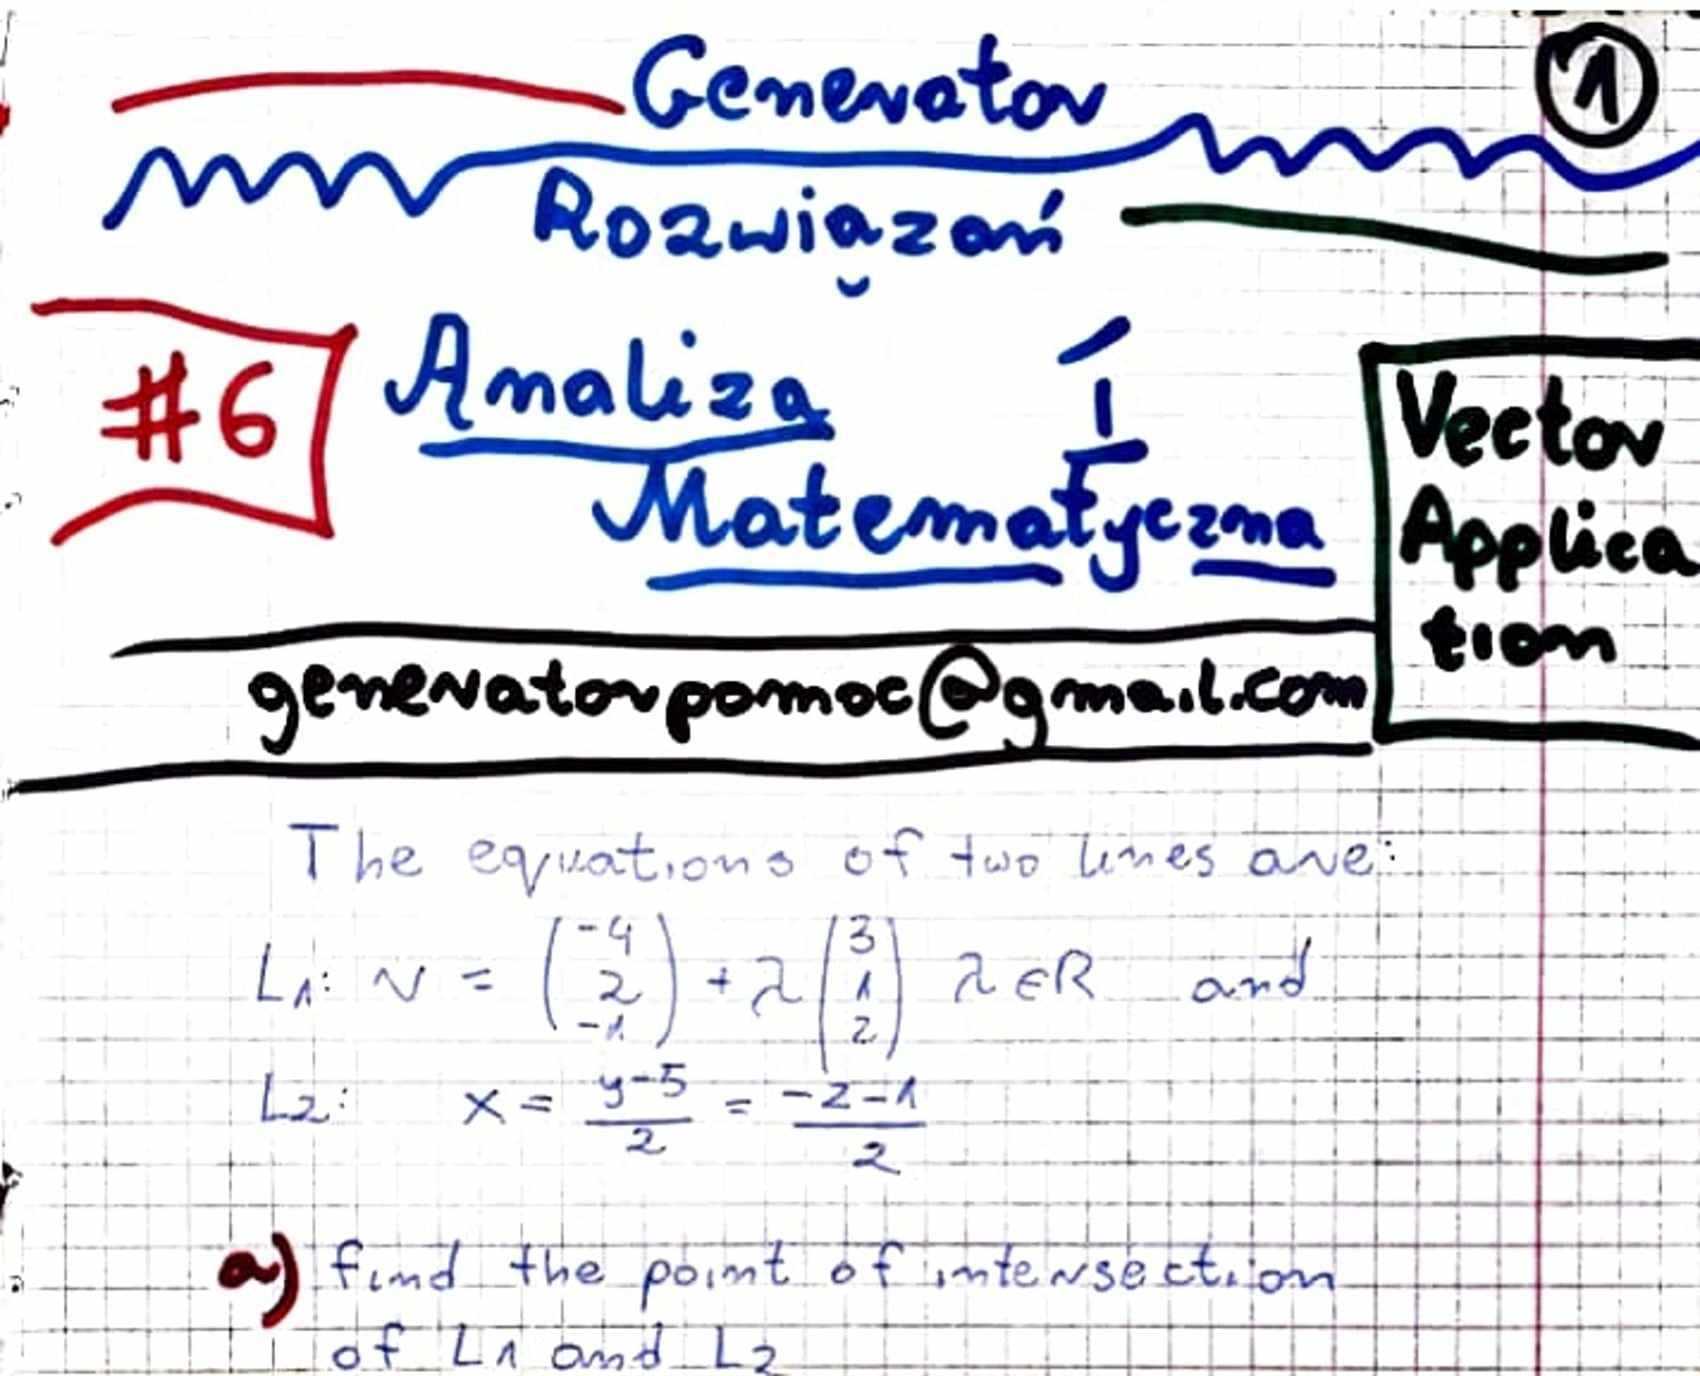 Generator
①
Rozwiązań
#6
Analiza
Matematyczna
Vector
Applica
tion
generatorpomoc@gmail.com
The equations of two lines are:
L1: r = (-4 2 -1) + λ (3 1 2) λ ∈ R and
L2: x = y-5/2 = -z-1/2
a) find the point of intersection
of L1 and L2